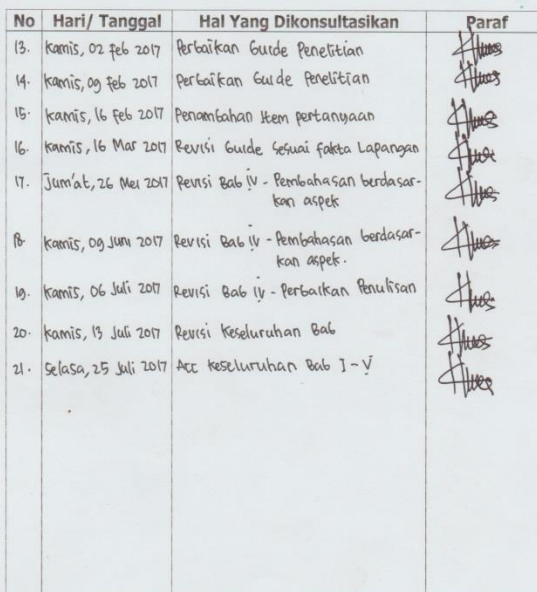 No Hari/ Tanggal Hal Yang Dikonsultasikan Paraf
13. Kamis, 02 Feb 2017 Perbaikan Guide Penelitian
14. Kamis, 09 Feb 2017 Perbaikan Guide Penelitian
15. Kamis, 16 Feb 2017 Penambahan Item pertanyaan
16. Kamis, 16 Mar 2017 Revisi Guide Sesuai fakta Lapangan
17. Jum'at, 26 Mei 2017 Revisi Bab IV - Pembahasan berdasar-
kan aspek
18. Kamis, 09 Juni 2017 Revisi Bab IV - Pembahasan berdasar-
kan aspek.
19. Kamis, 06 Juli 2017 Revisi Bab IV - Perbaikan Penulisan
20. Kamis, 13 Juli 2017 Revisi Keseluruhan Bab
21. Selasa, 25 Juli 2017 Acc Keseluruhan Bab I - V